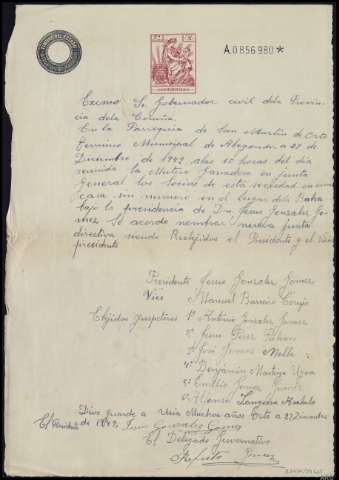 A.0856980*
Excmo Sr Gobernador civil dela Provin
cia dela Coruña
En la Parroquia de San Martin de Orto
Termino Municipal de Abegondo a 27 de
Diciembre de 1942 alas 10 horas del dia
reunida la Mutua Ganadera en junta
General los Socios de esta sociedad en una
casa sin numero en el lugar dela
bajo la presidencia de Don Jesus Gonzalez Go
mez Se acordo nombrar nueva junta
directiva siendo Relejidos el Presidente y el Vice
presidente
Presidente Jesus Gonzalez Gomez
Vice Manuel Barreiro
Elejidos 1º Antonio Gonzalez Gomez
2º Jesus Perez
3º José Gomez
4º Benjamin
5º Emilio Gomez
6º Alonso
Dios guarde a Usia Muchos años Orto a 27 Diciembre
El Presidente de 1942 Jesus Gonzalez Gomez
El Delegado Guvernativo